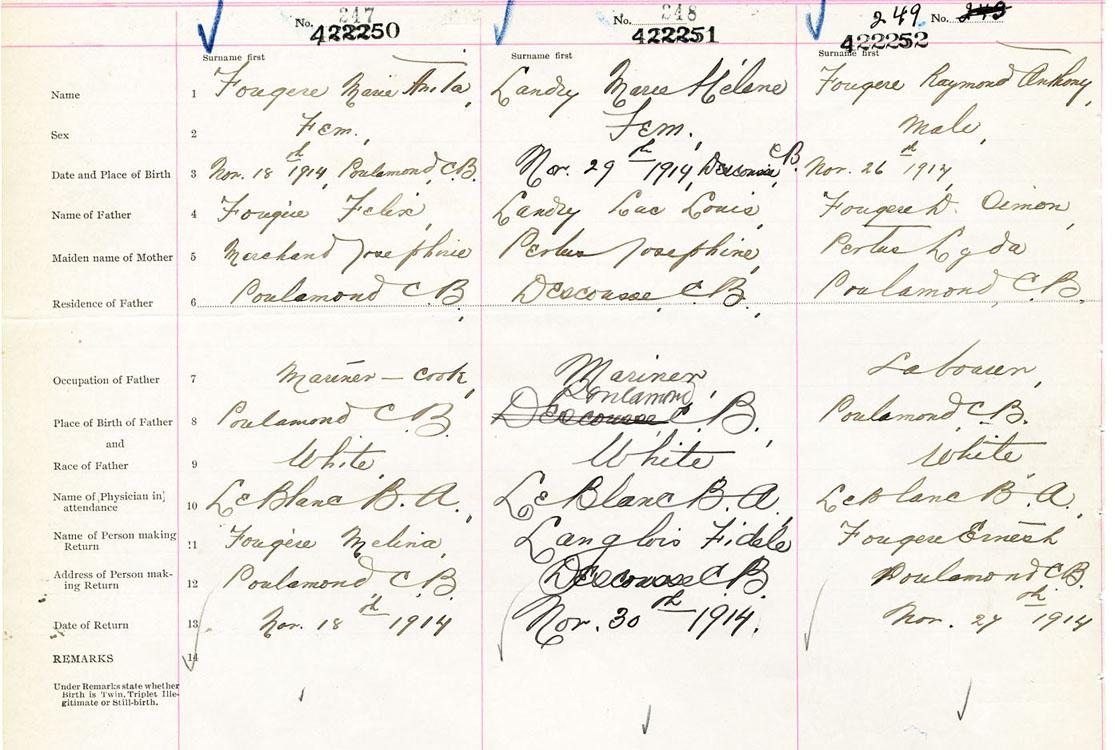 No. 247 No. 248 249 No. 249
422250 422251 422252
Surname first Surname first Surname first
Name 1 Fougere Marie Anita, Landry Marie Hélene Fougere Raymond Anthony,
Sex 2 Fem., Fem., Male,
Date and Place of Birth 3 Nov. 18th 1914, Poulamond, C.B. Nov. 29th 1914, Descousse, C.B. Nov. 26th 1914,
Name of Father 4 Fougère Felix, Landry Luc Louis, Fougere D. Simon,
Maiden name of Mother 5 Marchand Josephine Pertus Josephine, Pertus Lyda
Residence of Father 6 Poulamond C.B., Descousse, C.B., Poulamond, C.B.
Occupation of Father 7 Mariner - Cook, Mariner Labourer,
Poulamond,
Place of Birth of Father 8 Poulamond C.B., Descousse C.B., Poulamond, C.B.
and
Race of Father 9 White, White White,
Name of Physician in attendance 10 LeBlanc B. A., LeBlanc B. A., LeBlanc B. A.,
Name of Person making Return 11 Fougère Melina, Langlois Fidèle Fougere Ernest
Address of Person making Return 12 Poulamond C.B., Descousse C.B. Poulamond C.B.
Date of Return 13 Nov. 18th 1914 Nov. 30th 1914. Nov. 27th 1914
REMARKS 14
Under Remarks state whether
Birth is Twin, Triplet Ille-
gitimate or Still-birth.